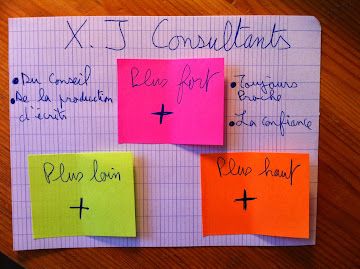 X. J Consultants
• Du Conseil
• De la production
d'écrits
Plus fort
+
• Toujours
Proche
• La confiance
Plus loin
+
Plus haut
+